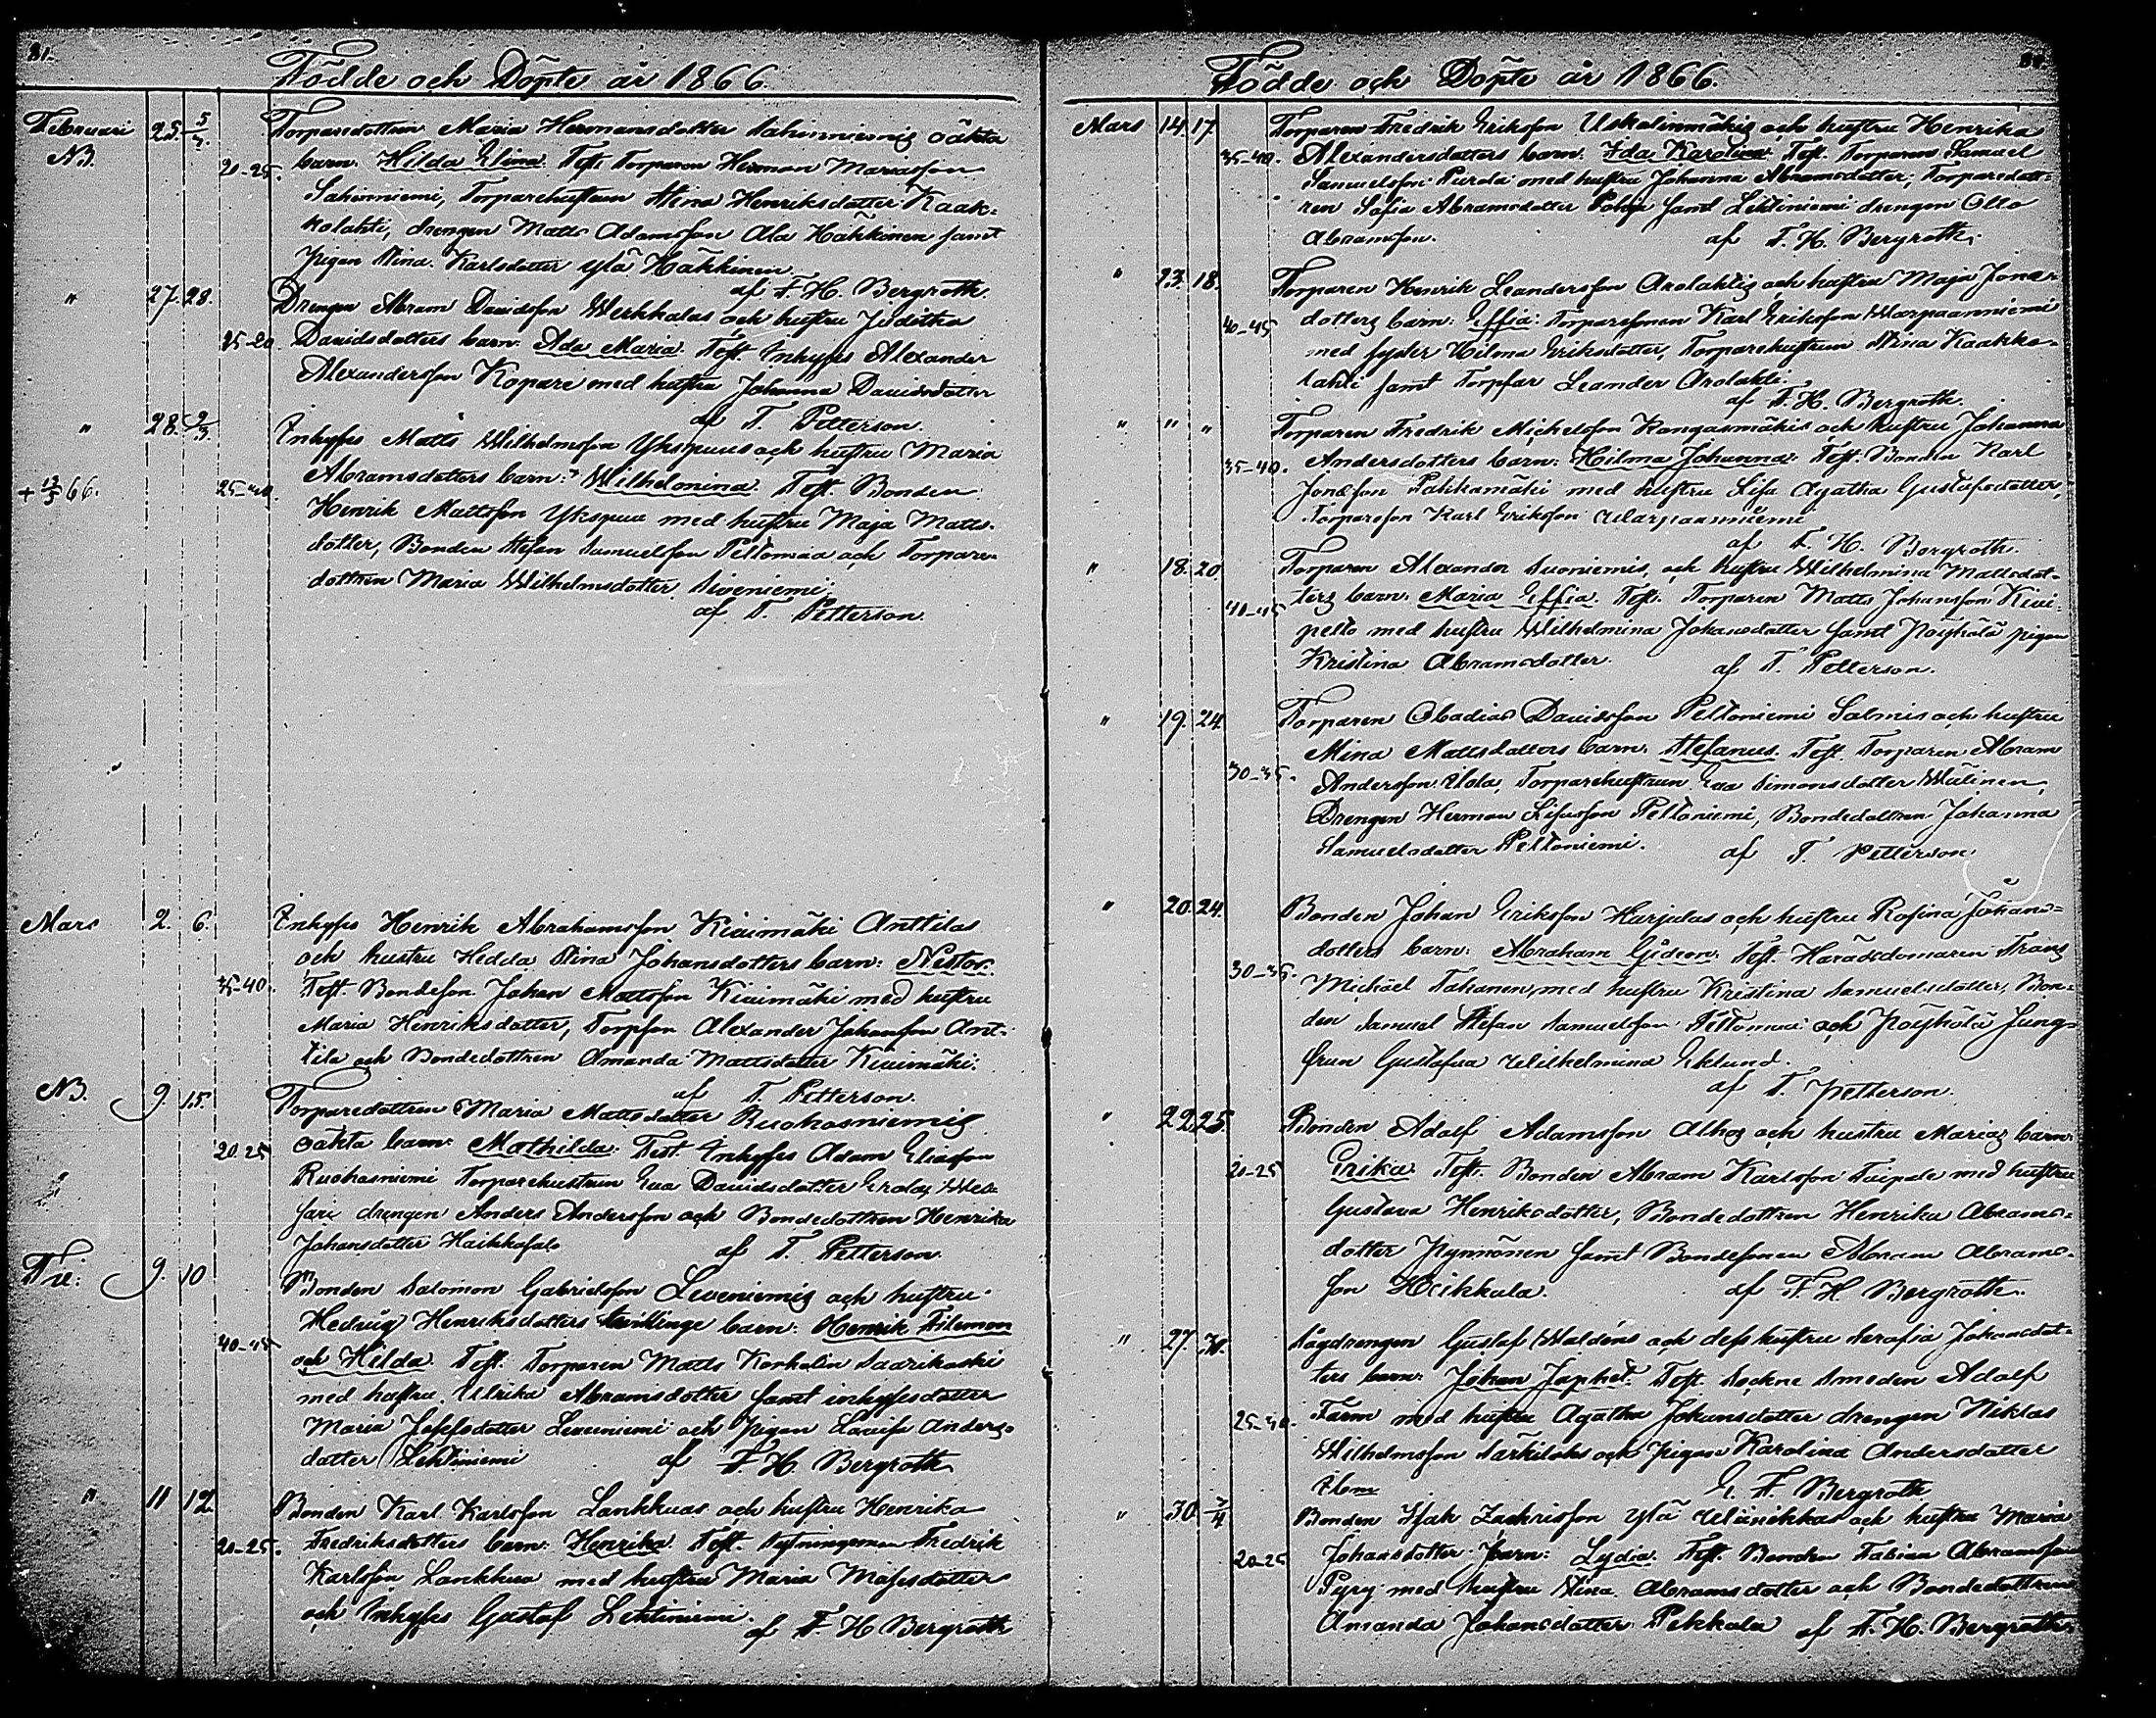 81.
Födde och Döpte år 1866.
Februari 25. 5/4. Torparedottren Maria Hermansdotter Sahinniemis oäkta
NB. 20-25. barn: Hilda Elina. Test. Torparen Herman Mariasson
Sahinniemi, Torparehustrun Stina Henriksdotter Kaak-
kolahti, drengen Matts Adamsson Ala Häkkinen samt
pigan Stina Karlsdotter Ylä Häkkinen.
af F. H. Bergroth.
" 27. 28. Drengen Abram Davidsson Werkkalas och hustru Juditha
25-20. Davidsdotters barn: Ada Maria. Test. Inhyses Alexander
Alexandersson Kopare med hustru Johanna Davidsdotter
af T. Petterson.
" 28. 2/3 Inhyses Matts Wilhelmsson Ykspuus och hustru Maria
+ 66. Abramsdotters barn: Wilhelmina. Test. Bonden
Henrik Mattsson Ykspuu med hustru Maja Matts-
dotter, Bonden Stefan Samuelsson Peltomaa och Torpare-
dottren Maria Wilhelmsdotter Siveniemi.
af T. Petterson.
Mars 2. 6. Inhyses Henrik Abrahamsson Kivimäki Anttilas
och hustru Hedda Stina Johansdotters barn: Nestor.
35-40. Test. Bondeson Johan Mattsson Kivimäki med hustru
Maria Henriksdotter, Torpson Alexander Johansson Ant-
tila och Bondedottren Amanda Mattsdotter Kivimäki.
af T. Petterson.
NB. 9. 15. Torparedottren Maria Mattsdotter Ruohoniemis
20-25 oäkta barn: Mathilda. Test. Inhyses Adam Eliasson
Ruohoniemi Torparehustrun Eva Davidsdotter Erola,
drengen Anders Andersson och Bondedottren Henrika
Johansdotter Haikkosalo
af T. Petterson.
9. 10 Bonden Salomon Gabrielsson Leveniemis och hustru
Hedvig Henriksdotters tvillinge barn: Henrik Filemon
40-45 och Hilda. Test. Torparen Matts Korholin Saarikoski
med hustru Ulrika Abramsdotter samt inhysesdotter
Maria Josefsdotter Leveniemi och pigan Lovisa Anders-
dotter Lehtiniemi
af F. H. Bergroth
" 11 12 Bonden Karl Karlsson Lankkuas och hustru Henrika
20-25. Fredriksdotters barn: Henrika. Test. Fredrik
Karlsson Lankkua med hustru Maria Mosesdotter
och Inhyses Gustaf Lehtiniemi.
af F. H. Bergroth
Födde och Döpte år 1866.
Mars 14. 17. Torparen Fredrik Eriksson Uskalinmäkis och hustru Henrika
35-40. Alexandersdotters barn: Ida Karolina. Test. Torparen Samuel
Samuelsson Purola med hustru Johanna Abramsdotter, Torparedott-
ren Sofia Abramsdotter Pohja samt Lehtiniemi drengen Otto
Abramsson.
af F. H. Bergroth.
" 13. 18. Torparen Henrik Leandersson Arolahtis och hustru Maja Jonæ-
40-45 dotters barn: Effia. Torparesonen Karl Eriksson Warpaanniemi
med syster Hilma Eriksdotter, Torparehustrun Stina Kaakko-
lahti samt Torpfar Leander Arolahti.
af F. H. Bergroth.
" " " Torparen Fredrik Michelsson Kangasmäkis och hustru Johanna
35-40. Andersdotters barn: Hilma Johanna. Test. Bonden Karl
Jonæson Pahkamäki med hustru Lisa Agatha Gustafsdotter,
Torpareson Karl Eriksson Warpaanniemi
af F. H. Bergroth.
" 18. 20 Torparen Alexander Suoniemis och hustru Wilhelmina Mattsdot-
40-45 ters barn: Maria Effia. Test. Torparen Matts Johansson Kivi-
pelto med hustru Wilhelmina Johansdotter samt Pöyhölä pigan
Kristina Abramsdotter.
af T. Petterson.
" 19. 24. Torparen Obadias Davidsson Peltoniemi Salmis och hustru
Mina Mattsdotters barn: Stefanus. Test. Torparen Abram
30-35. Andersson Ilola, Torparehustrun Eva Simonsdotter Wiilinen,
Drengen Herman Lisasson Peltoniemi, Bondedottren Johanna
Samuelsdotter Peltoniemi.
af T. Petterson
" 20. 24. Bonden Johan Eriksson Harjulas och hustru Rosina Johans-
dotters barn: Abraham Gideon. Test. Häradsdomaren Frans
30-35. Michael Tahanen, med hustru Kristina Samuelsdotter, Bon-
den Samuel Stefan Samuelsson Peltomaa och Pöyhölä Jung-
frun Gustafva Wilhelmina Eklund.
af T. Petterson.
" 22. 25. Bonden Adolf Adamsson Alhos och hustru Marias barn:
20-25 Erika. Test. Bonden Abram Karlsson Taipale med hustru
Gustava Henriksdotter, Bondedottren Henrika Abrams-
dotter Pynnönen samt Bondesonen Abram Abrams-
son Heikkala.
af F. H. Bergroth.
" 27. Sågdrengen Gustaf Waldéns och dess hustru Serafia Johansdot-
ters barn: Johan Japhet. Test. Sockne Smeden Adolf
25-30. Farm med hustru Agatha Johansdotter drengen Niklas
Wilhelmsson Särkilaks och pigan Karolina Andersdotter
E. F. Bergroth
" 30. 2/4 Bonden Isak Zachrisson Ylä Wiinikkas och hustru Maria
20-25 Johansdotter barn: Lydia. Test. Bonden Fabian Abramsson
Pyry med hustru Stina Abramsdotter och Bondedottren
Amanda Johansdotter Pekkala af F. H. Bergroth.